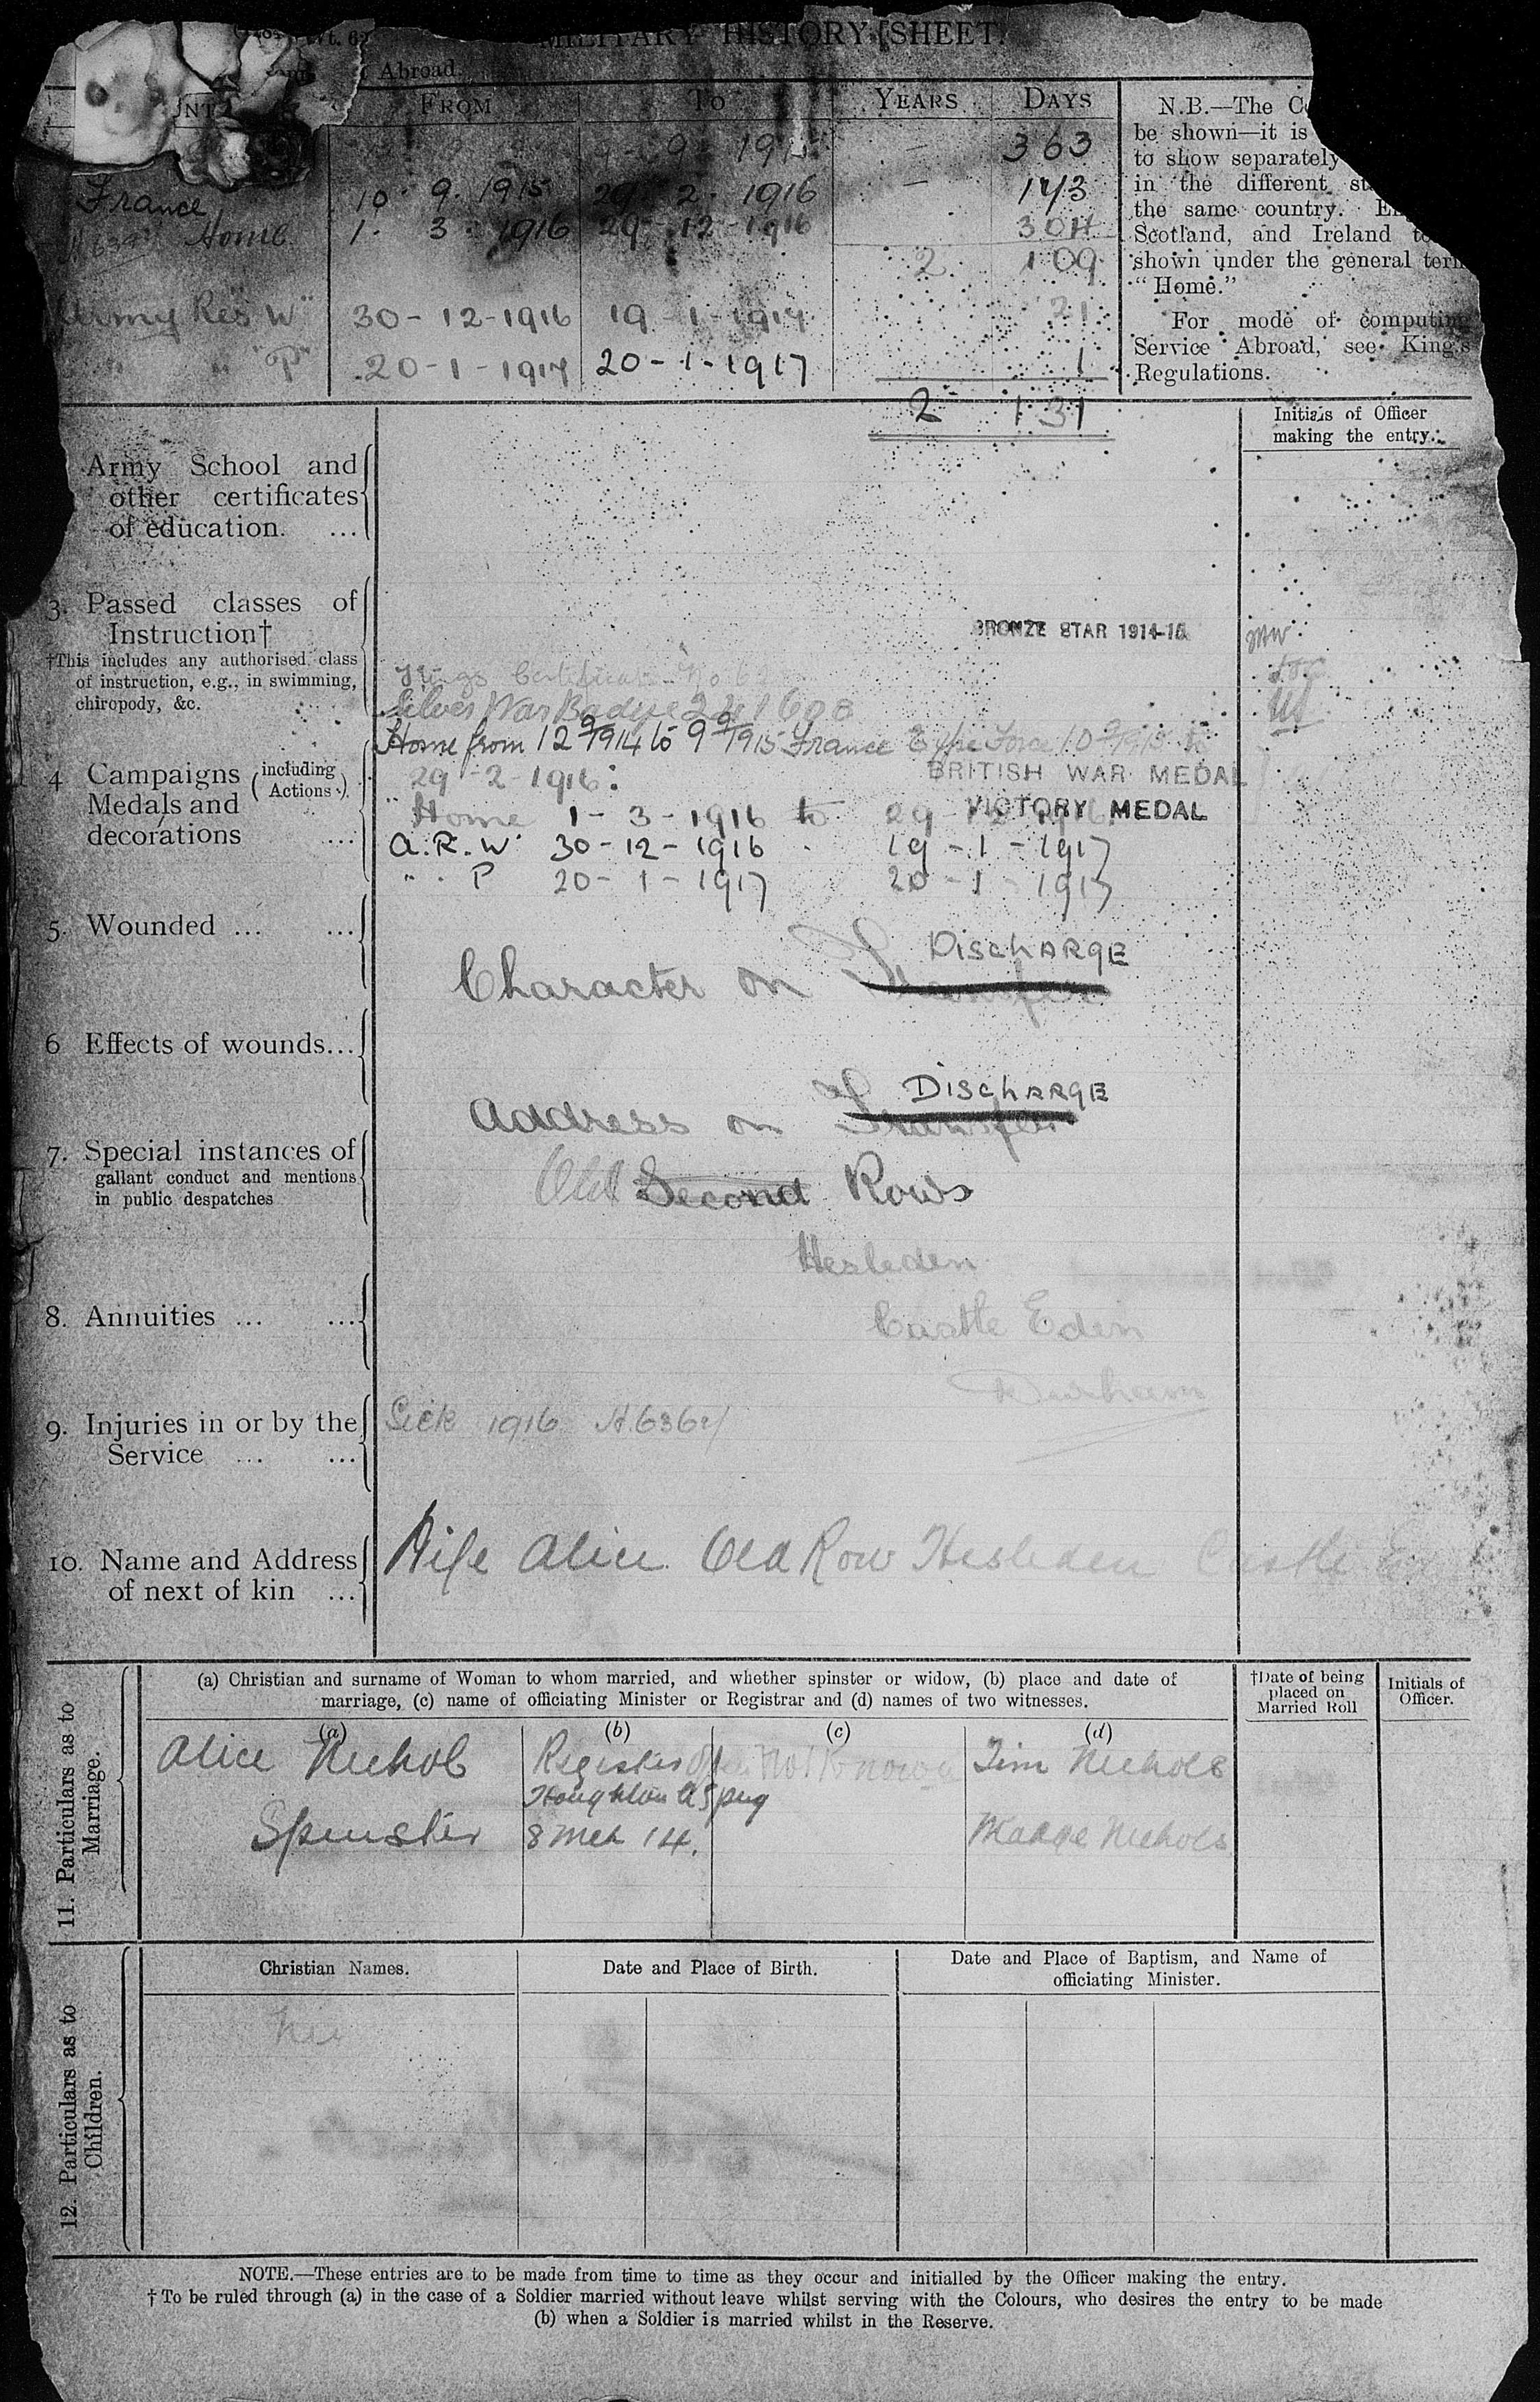 MILITARY HISTORY SHEET.
Abroad
FROM TO YEARS DAYS
9 191 – 363
France 10. 9. 1915 29 2. 1916 – 173
Home 1. 3. 1916 29-12-1916 304
2 109
Army Res W" 30-12-1916 19-1-1917 21
" " "P" 20-1-1917 20-1-1917 1
2 131
N.B.—The
be shown—it is
to show separately
in the different
the same country.
Scotland, and Ireland
shown under the general term
"Home."
For mode of computing
Service Abroad, see King's
Regulations.
Initials of Officer
making the entry.
Army School and
other certificates
of education. ...
3. Passed classes of
Instruction†
†This includes any authorised class
of instruction, e.g., in swimming,
chiropody, &c.
BRONZE STAR 1914-15
Kings Certificate No
Silver War Badge
Home from 12 9/1914 to 9 9/1915 France Expe Force 10 9/1915 to
29-2-1916:
BRITISH WAR MEDAL
4 Campaigns (including Actions)
Medals and
decorations ...
Home 1-3-1916 to 29-12-1916
VICTORY MEDAL
A.R.W 30-12-1916 19-1-1917
" . P 20-1-1917 20-1-1917
5. Wounded ... ...
Character on Transfer DISCHARGE
6 Effects of wounds...
Address on Transfer DISCHARGE
7. Special instances of
gallant conduct and mentions
in public despatches
Old Second Rows
Hesleden
Castle Eden
Durham
8. Annuities ... ...
9. Injuries in or by the
Service ... ...
Sick 1916
10. Name and Address
of next of kin ...
Wife Alice Old Row Hesleden Castle
11. Particulars as to
Marriage.
(a) Christian and surname of Woman to whom married, and whether spinster or widow, (b) place and date of
marriage, (c) name of officiating Minister or Registrar and (d) names of two witnesses.
†Date of being
placed on
Married Roll
Initials of
Officer.
(a) (b) (c) (d)
Alice Nichols Register Office Not Known Jim Nichols
Houghton le Spring
Spinster 8 Mch 14. Madge Nichols
12. Particulars as to
Children.
Christian Names. Date and Place of Birth. Date and Place of Baptism, and Name of
officiating Minister.
NOTE.—These entries are to be made from time to time as they occur and initialled by the Officer making the entry.
† To be ruled through (a) in the case of a Soldier married without leave whilst serving with the Colours, who desires the entry to be made
(b) when a Soldier is married whilst in the Reserve.